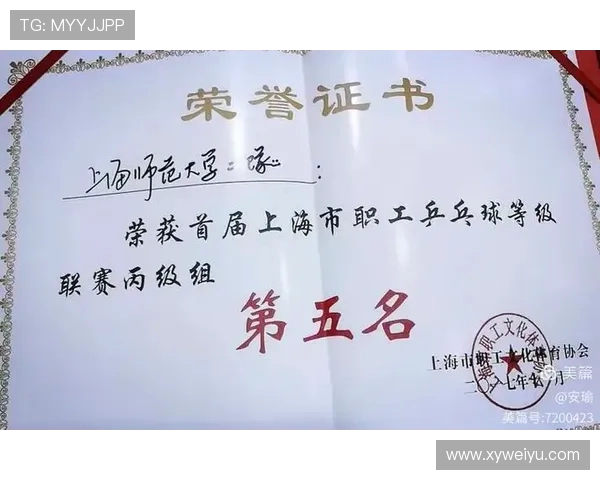 TG: MYYJJPP
荣誉证书
上海师范大学二队:
荣获首届上海市职工乒乓球等级
联赛丙级组
第五名
上海市职工文化体育协会
二〇一七年十一月
美篇
@安瑜
美篇号:7200423
www.xyweiyu.com